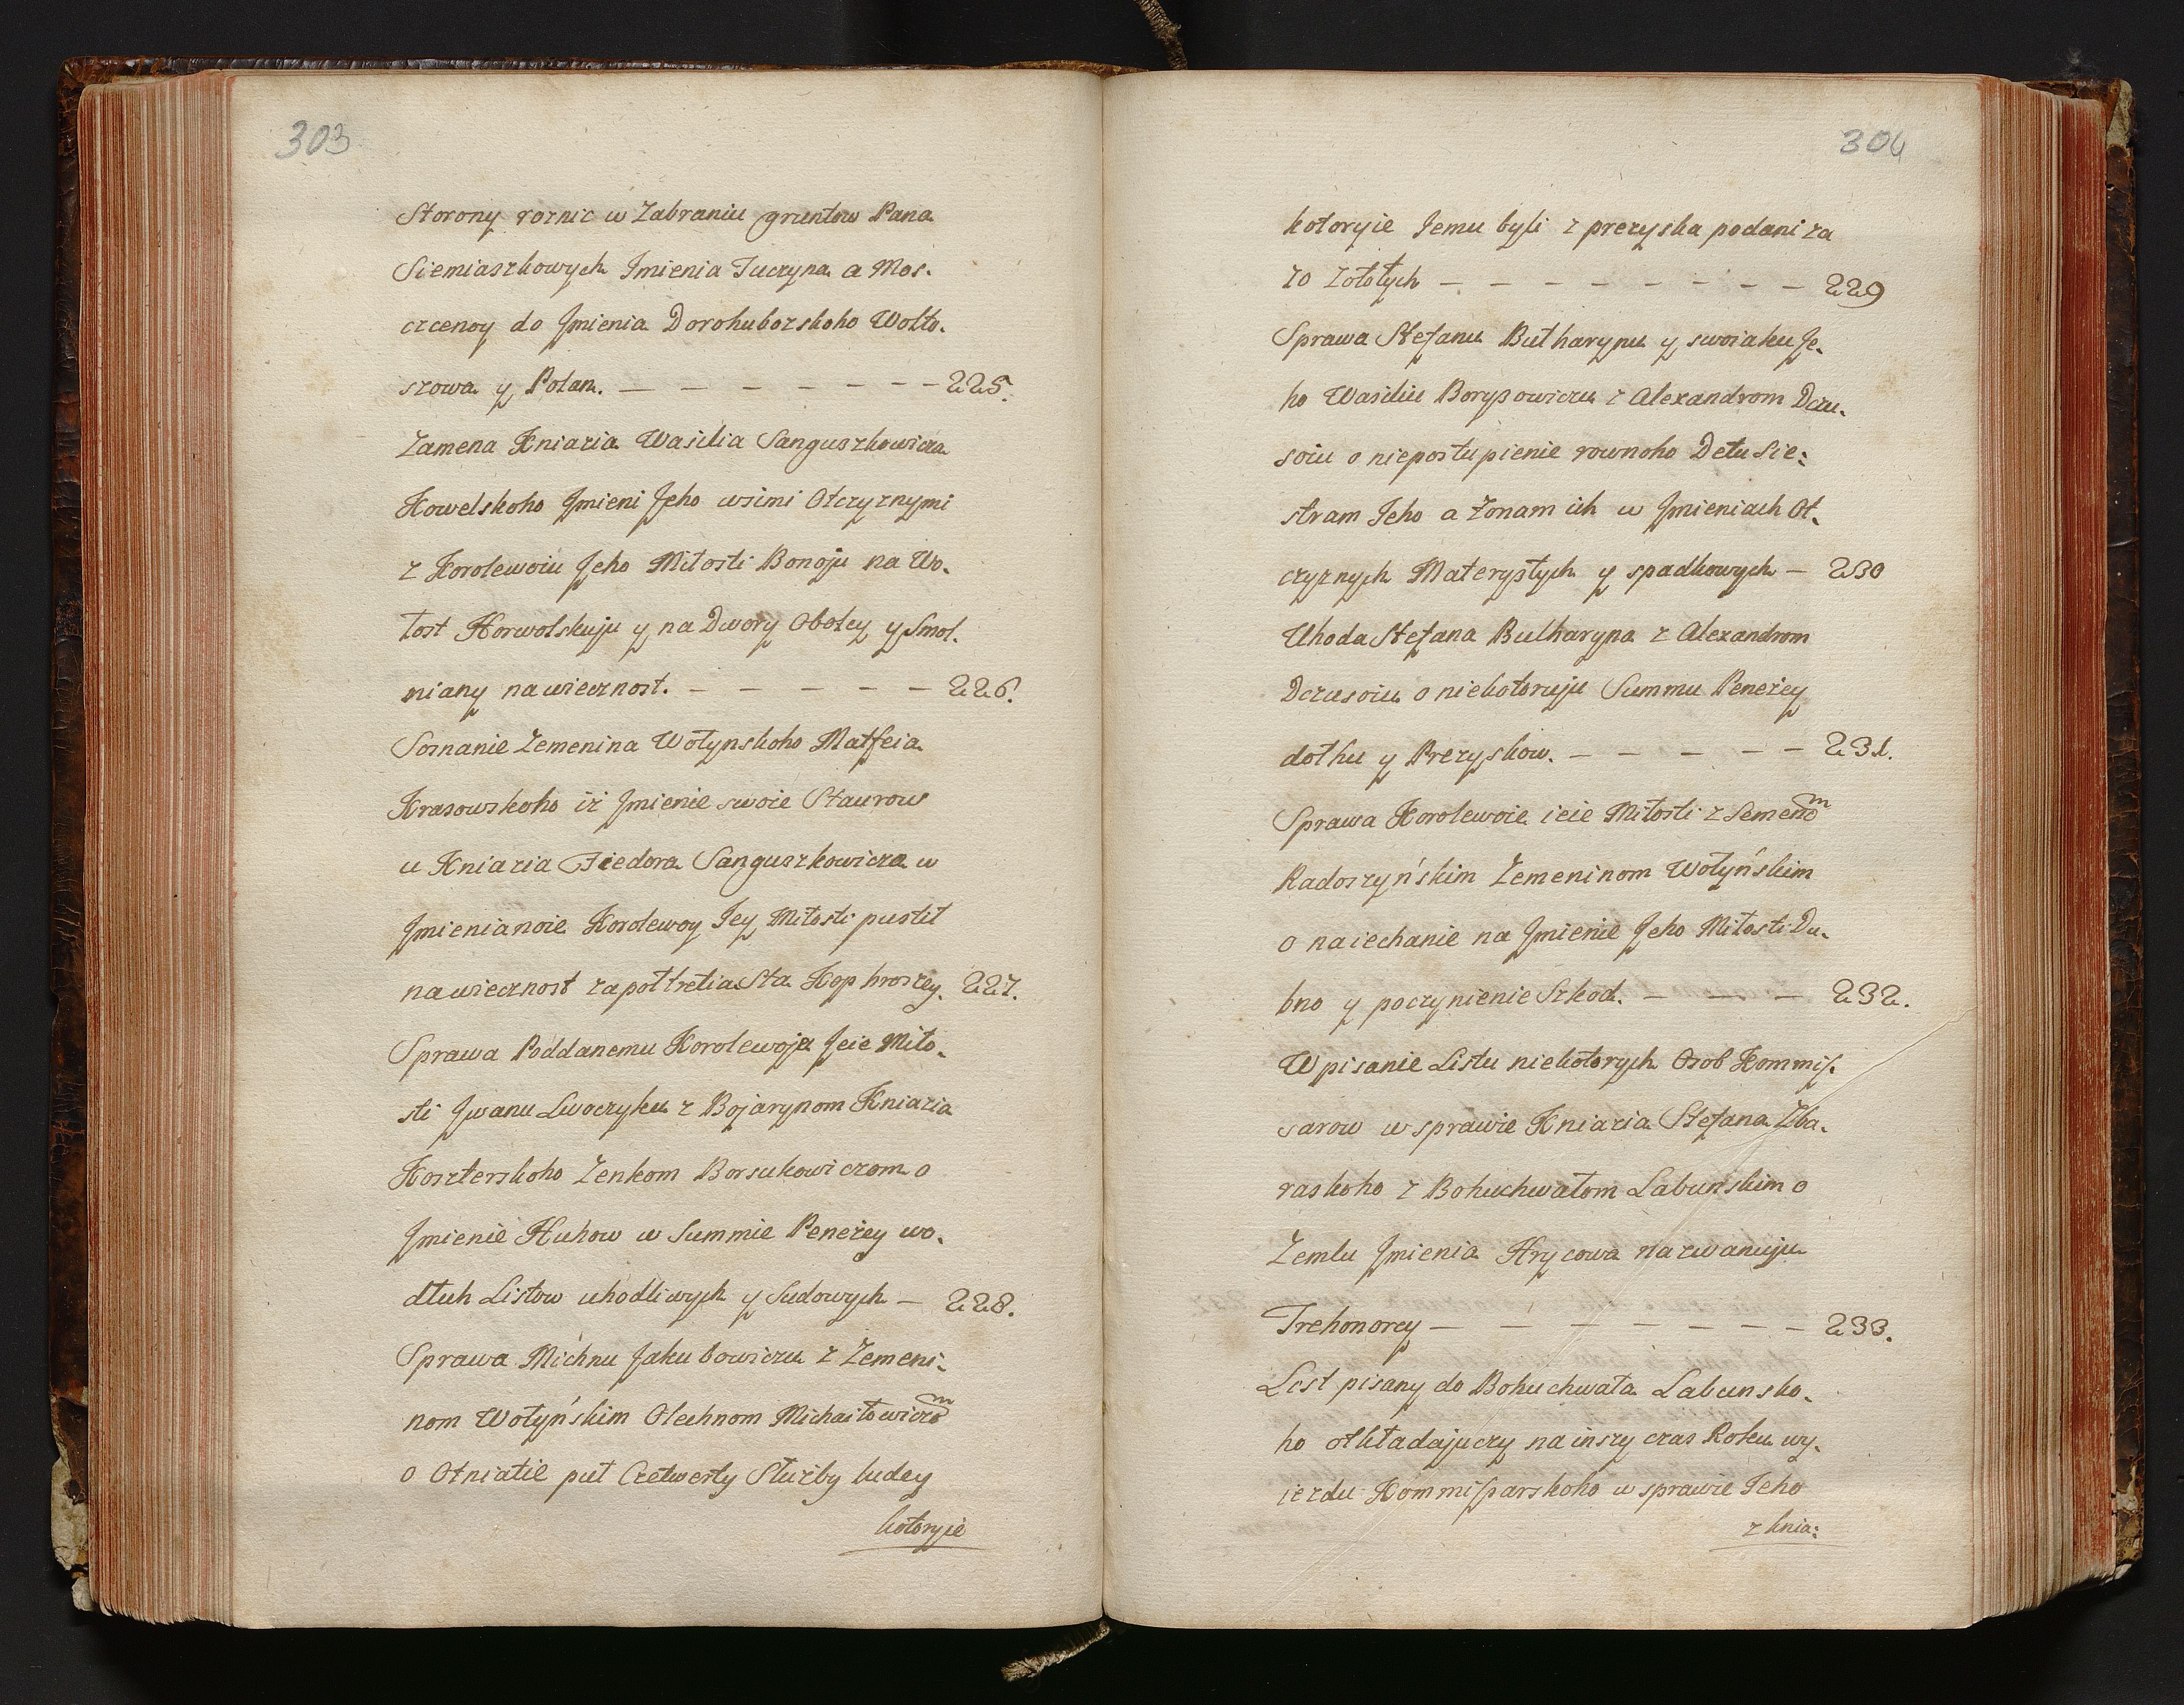 303
Storony roznic w Zabraniu gruntow Pana
Siemiaszkowych Imienia Tuczyna a Mos.
czcenoy do Imienia Dorohubozskoho Wolko.
szowa y Polan. — — — — — — — 225.
Zamena Kniazia Wasilia Sanguszkowicza
Kowelskoho Imieni Jeho wsimi Otczyznymi
z Korolewoiu Jeho Miłosti Bonoju na Wo.
łost Horwolskuju y na Dwory Obolcy y Smol.
niany na wiecznost. — — — — — 226.
Soznanie Zemenina Wołynskoho Matfeia
Krasowskoho iż Imienie swoie Staurow
u Kniazia Fiedora Sanguszkowicza w
Imienia noie Korolewoy Jey Miłosti pustił
na wiecznost za połtretia Sta Kop hroszey. 227.
Sprawa Poddanemu Korolewoje Jeie Miło.
sti Iwanu Lwoczyku z Bojarynom Kniazia
Koszterskoho Zenkom Borsukowiczom o
Imienie Huhow w Summie Peneżey wo.
dłuh Listow uhodliwych y Sudowych — 228.
Sprawa Michnu Jakubowiczu z Zemeni.
nom Wołyńskim Olechnom Michaiłowiczom
o Otniatie put Czetwerty Służby ludey
kotoryie
304
kotoryie Jemu byli z prezyska podani za
70 Zołotych — — — — — — — — 229
Sprawa Stefanu Butharynu y swoiaku Je.
ho Wasiliu Borysowiczu z Alexandrom Dczu.
soiu o niepostupienie rownoho Dełu Sie:
stram Jeho a Zonam ich w Imieniach Ot.
czyznych Materystych y spadkowych — 230
Uhoda Stefana Bulharyna z Alexandrom
Dczusoiu o niekotoruju Summu Peneżey
dothu y Prezyskow. — — — — — 231.
Sprawa Korolewoie ieie Miłosti z Semenom
Radoszyńskim Zemeninom Wołyńskim
o naiechanie na Imienie Jeho Miłosti Du.
bno y poczynienie Szkod. — — — 232.
Wpisanie Listu niekotorych Osob Kommis.
sarow w sprawie Kniazia Stefana Zba.
raskoho z Bohuchwałom Labunskim o
Zemlu Imienia Hrycowa nazwanuju
Trehonorcy — — — — — — — 233.
List pisany do Bohuchwała Labunsko.
ho otkładajuczy na inszy czas Roku wy.
iezdu Kommissarskoho w sprawie Jeho
z knia: